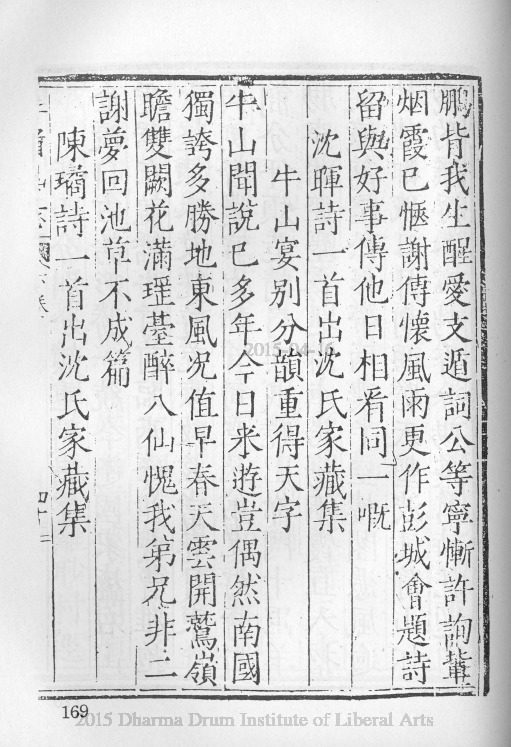 鵬背我生醒愛支遁詞公等寧慚許詢輩
烟霞已愜謝傅懷風雨更作彭城會題詩
留與好事傳他日相看同一嘅
沈暉詩一首出沈氏家藏集
牛山宴别分韻重得天字
牛山聞說已多年今日来遊豈偶然南國
獨誇多勝地東風况值早春天雲開鷲嶺
瞻雙闕花滿瑶臺醉八仙愧我第兄非二
謝夢回池草不成篇
陳璚詩一首出沈氏家藏集
四十二
2015-04-16
169
2015 Dharma Drum Institute of Liberal Arts